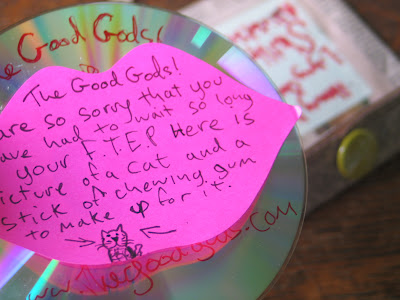 e Good Gods!
The Good Gods!
are so sorry that you
ave had to wait so long
your F.T.E.P Here is
icture of a cat and a
stick of chewing gum
to make up for it.
www.TheGoodGods.com